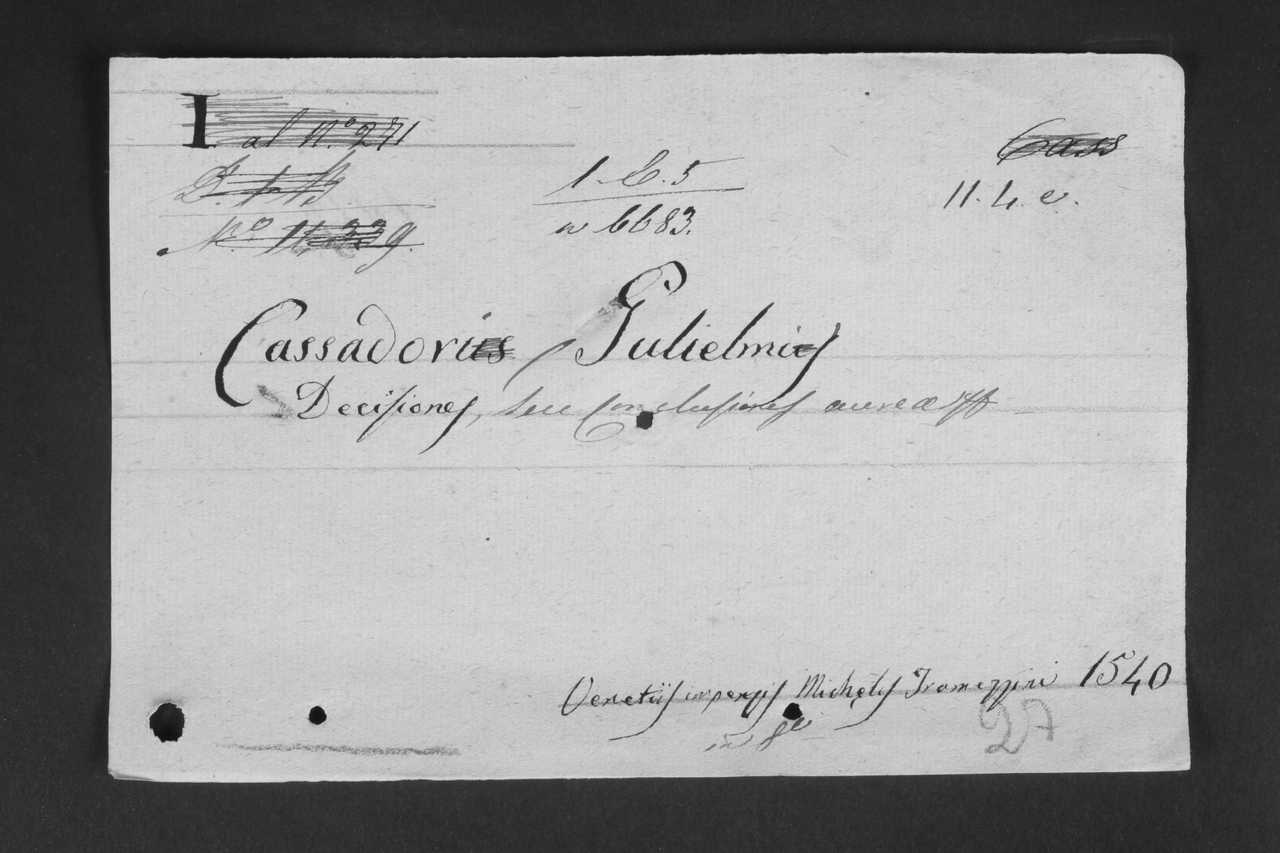 I al N.º 271
Nº 11,339.
1. C. 5
n 6683.
Cass
11. 4. e.
Cassadorius, Gulielmus
Decisiones, seu Conclusiones aureæ
Venetiis impensis Michelis Tramezzini 1540
in 8º
27